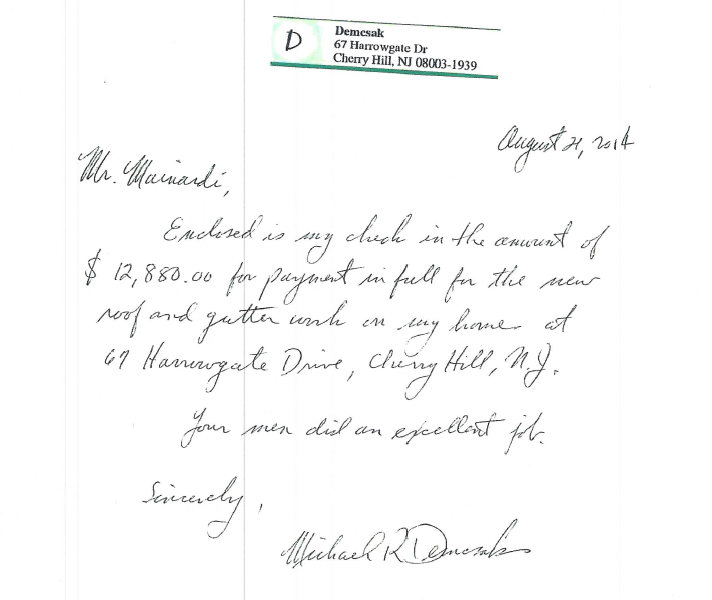 D
Demcsak
67 Harrowgate Dr
Cherry Hill, NJ 08003-1939
August 21, 2014
Mr. Mainardi,
Enclosed is my check in the amount of
$ 12,880.00 for payment in full for the new
roof and gutter work on my home at
67 Harrowgate Drive, Cherry Hill, N.J.
Your men did an excellent job.
Sincerely,
Michael R Demcsak